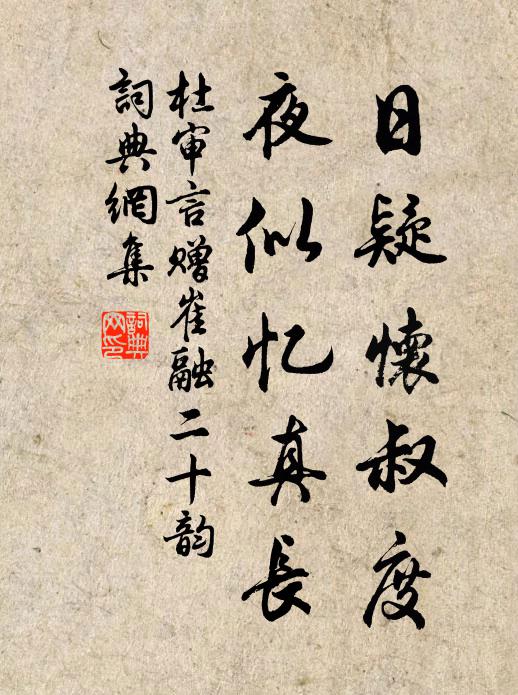 日疑懷叔度
夜似忆真長
杜审言赠崔融二十韵
詞典網集
詞典網印